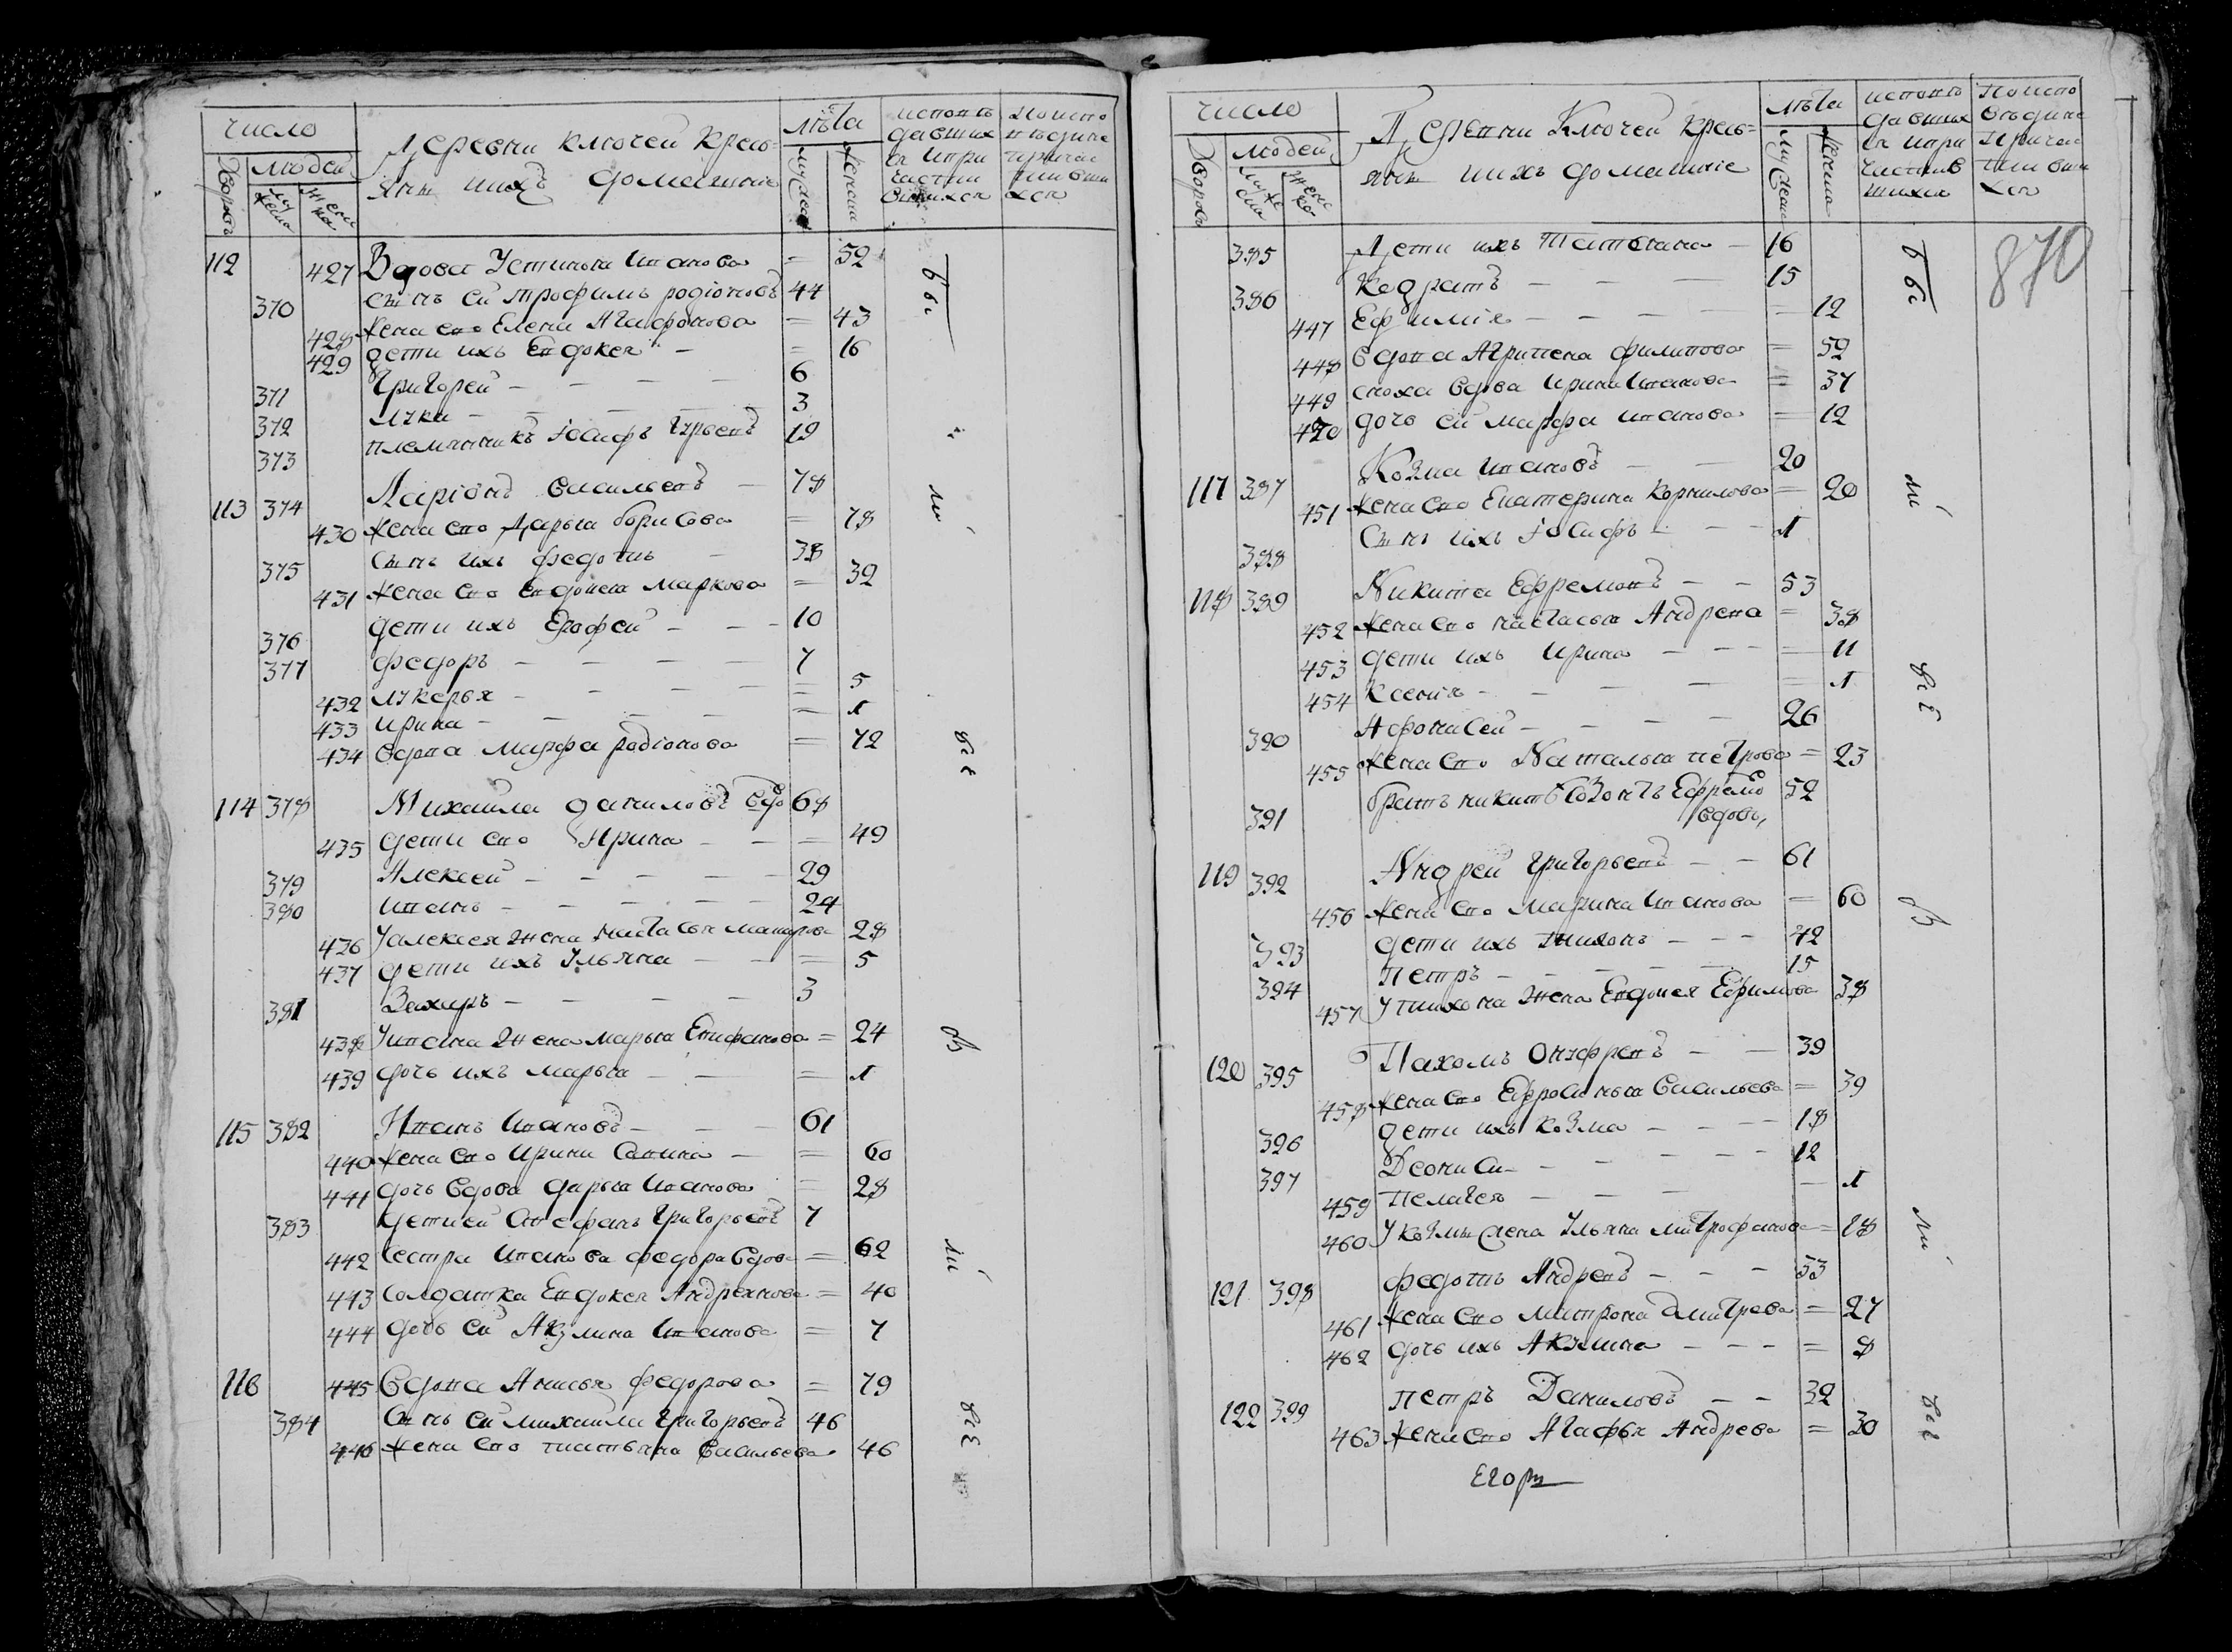 Число
Дворовъ
Людей
Мужеска
Женска
Деревни Ключей Кресть-
янъ и ихъ домашние
Лѣта
Мужеска
Женска
112 427 Вдова Устинья Иванова = 52
370 сынъ ей Трофимъ Родіоновъ 44
428 жена ево Елена Агафонова = 43
429 дети ихъ Евдокея = 16
371 Григорей 6
372 Лука 3
373 племянникъ Іосифъ Гурьевъ 19
113 374 Ларіонъ Васильевъ 78
430 жена ево Дарья Борисова = 78
375 сынъ ихъ Федотъ 38
431 жена ево Евдокея Маркова = 32
376 дети ихъ Ерофей 10
377 Федоръ 7
432 Лукерья = 5
433 Ирина = 1
434 вдова Марфа Родіонова = 72
114 378 Михаила Даниловъ вдо 68
435 дети ево Ирина = 49
379 Алексей 29
380 Иванъ 24
436 У Алексея жена Настасья 28
437 дети ихъ Ульяна = 5
381 Захаръ 3
438 У Ивана жена Марья Епифанова = 24
439 дочь ихъ Марья = 1
115 382 Иванъ Ивановъ 61
440 жена ево Ирина Савина = 60
441 дочь вдова Дарья Иванова = 28
383 Григорьевъ 7
442 Сестра Иванова Федора вдова = 62
443 солдатка Евдокея Андреянова = 40
444 дочь ей Акулина Иванова = 7
116 445 Вдова Анисья Федорова = 79
384 сынъ ей Михаила Григорьевъ 46
446 жена ево Татьяна Васильева 46
Число
Дворовъ
Людей
Мужеска
Женска
Деревни Ключей Кресть-
янъ и ихъ домашние
Лѣта
Мужеска
Женска
870
385 Дети ихъ 16
386 Кодратъ 15
447 Ефимія = 12
448 вдова Агрипена Филипова = 59
449 сноха вдова Ирина Иванова = 37
450 дочь ей Марфа Иванова = 12
117 387 Козма Ивановъ 20
451 жена ево Екатерина Корнилова = 20
388 Сынъ ихъ Іосифъ 1
118 389 Никита Ефремовъ 53
452 жена ево Настасья Андрева = 38
453 дети ихъ Ирина = 11
454 Ксенія = 1
390 Афонасей 26
455 жена ево Наталья Петрова = 23
391 братъ Никитѣ Созонтъ Ефремо 52
вдовъ,
119 392 Андрей Григорьевъ 61
456 жена ево Марина Иванова = 60
393 дети ихъ Тихонъ 42
394 Петръ 15
457 У Тихона жена Евдокея Ефимова 38
120 395 Пахомъ Онуфревъ 39
458 жена ево Ефросинья Васильева = 39
396 дети ихъ Козма 18
397 Деониси 12
459 Пелагея 1
460 У Козмы жена Ульяна Митрофанова = 18
121 398 Федотъ Андревъ 53
461 жена ево Матрона Дмитрева = 27
462 дочь ихъ Акулина = 8
122 399 Петръ Даниловъ 32
463 жена ево Агафья Андрева = 30
Егоръ